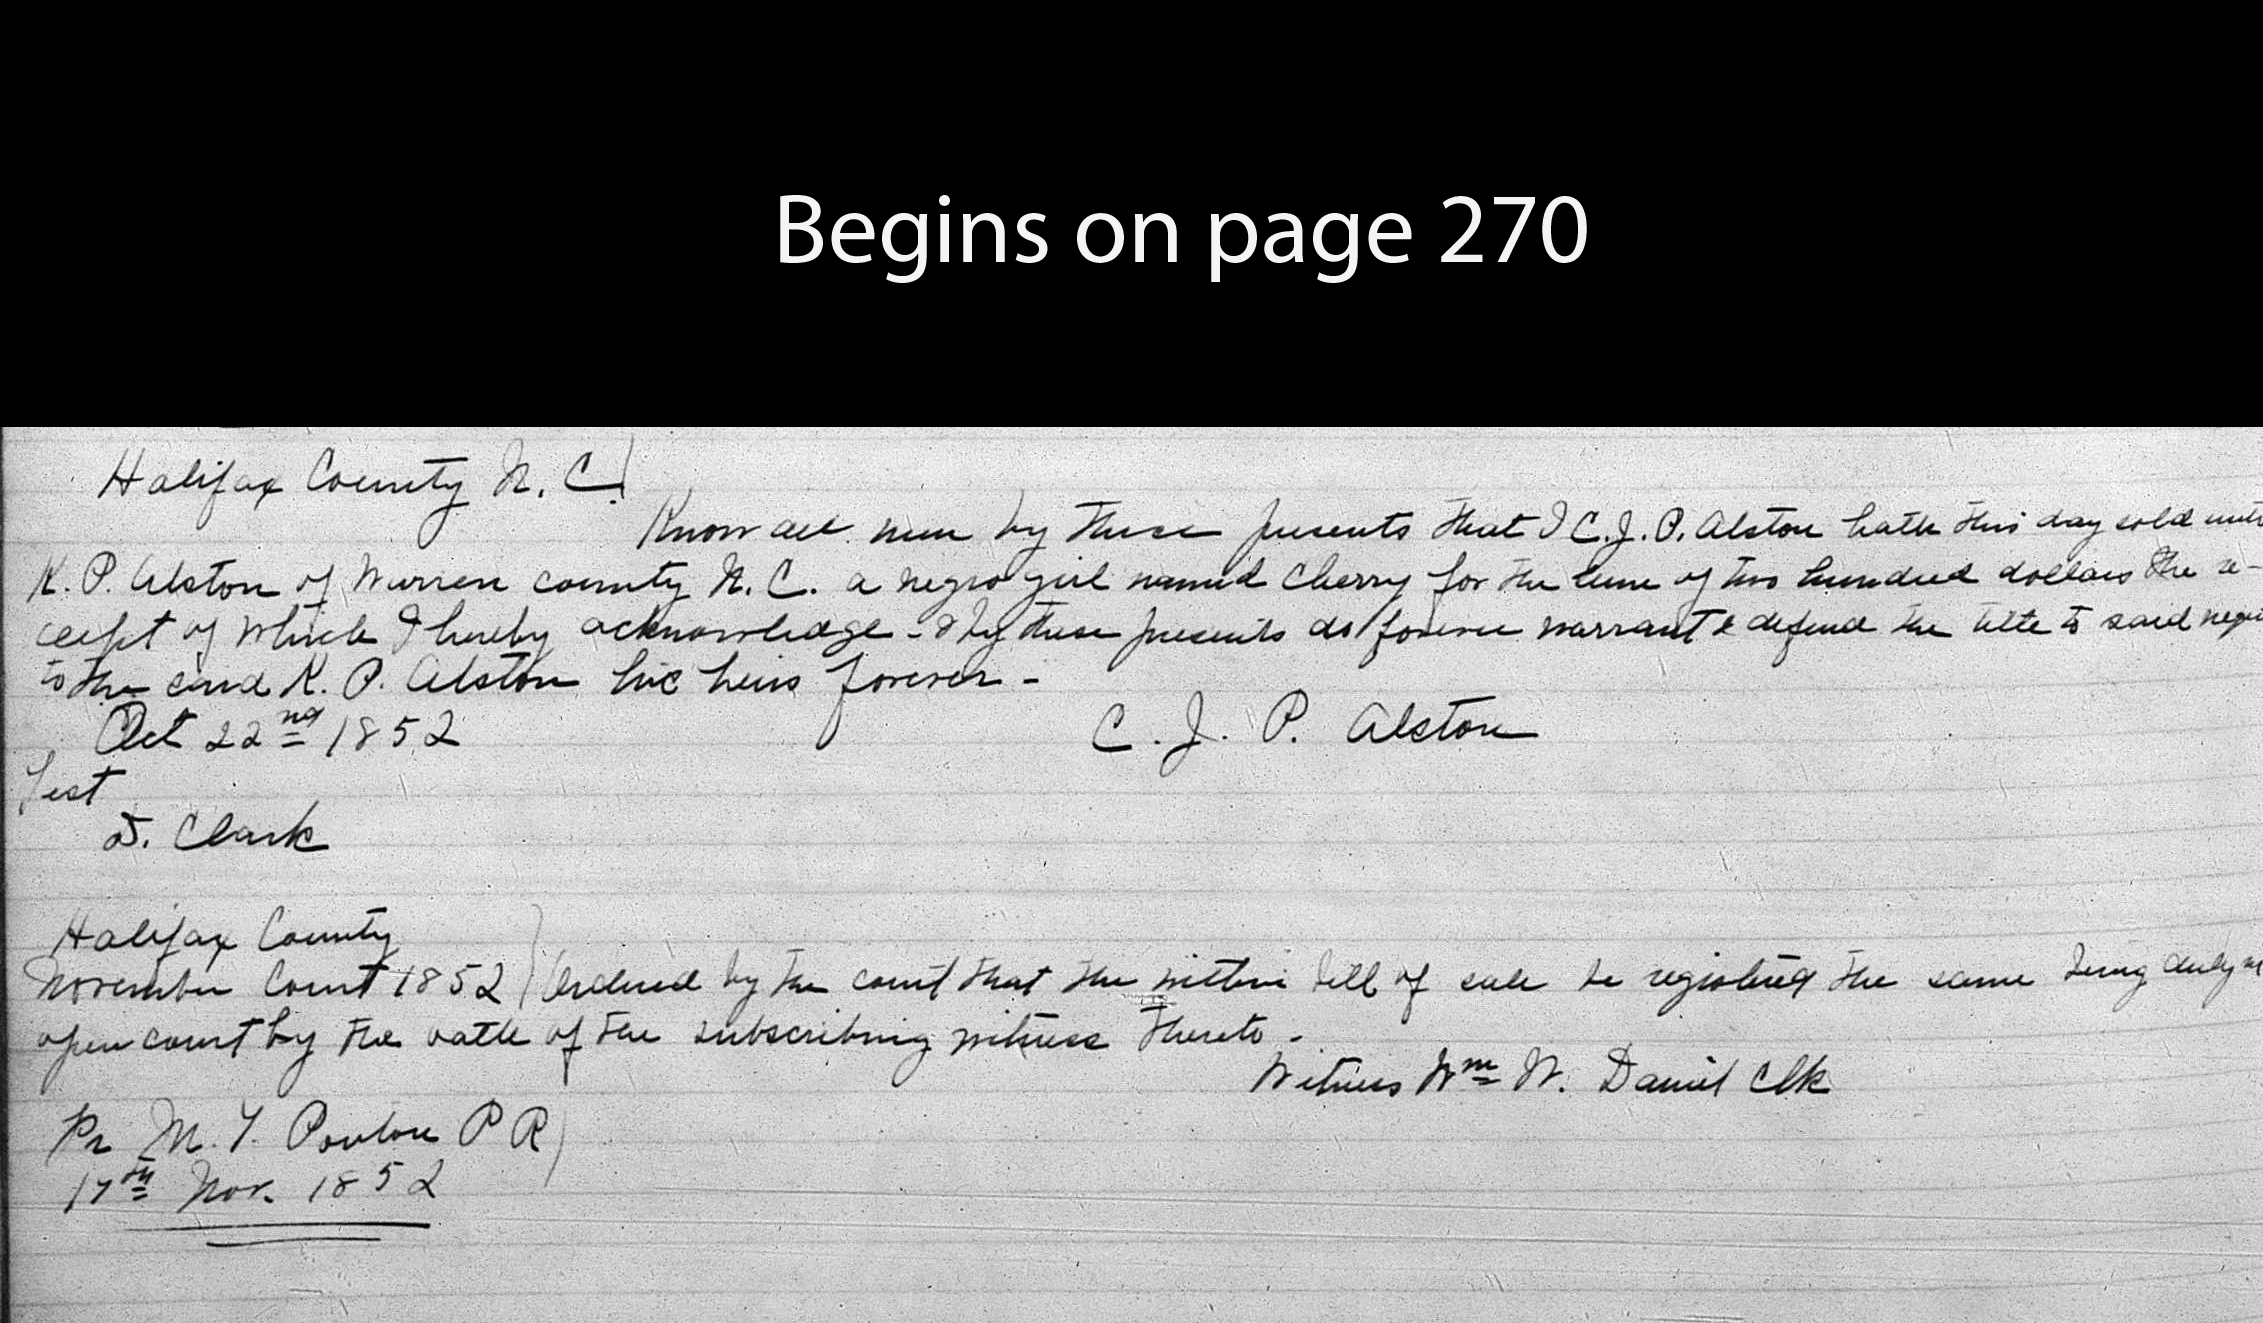 Begins on page 270
Halifax County N. C.
Know all men by these presents that I C. J. P. Alston hath this day sold unto
K. P. Alston of Warren county N. C. a negro girl named Cherry for the sum of two hundred dollars the re-
ceipt of which I hereby acknowledge - & by these presents do forever warrant & defend the title to said negro
to the said K. P. Alston his heirs forever -
Oct 22nd 1852
C. J. P. Alston
Test
D. Clark
Halifax County
November Court 1852 Ordered by the court that the within bill of sale be registered the same being duly
open court by the oath of the subscribing witness thereto -
Witness Wm W. Daniel Clk
Pr M. T. Ponton P R
17th Nov. 1852